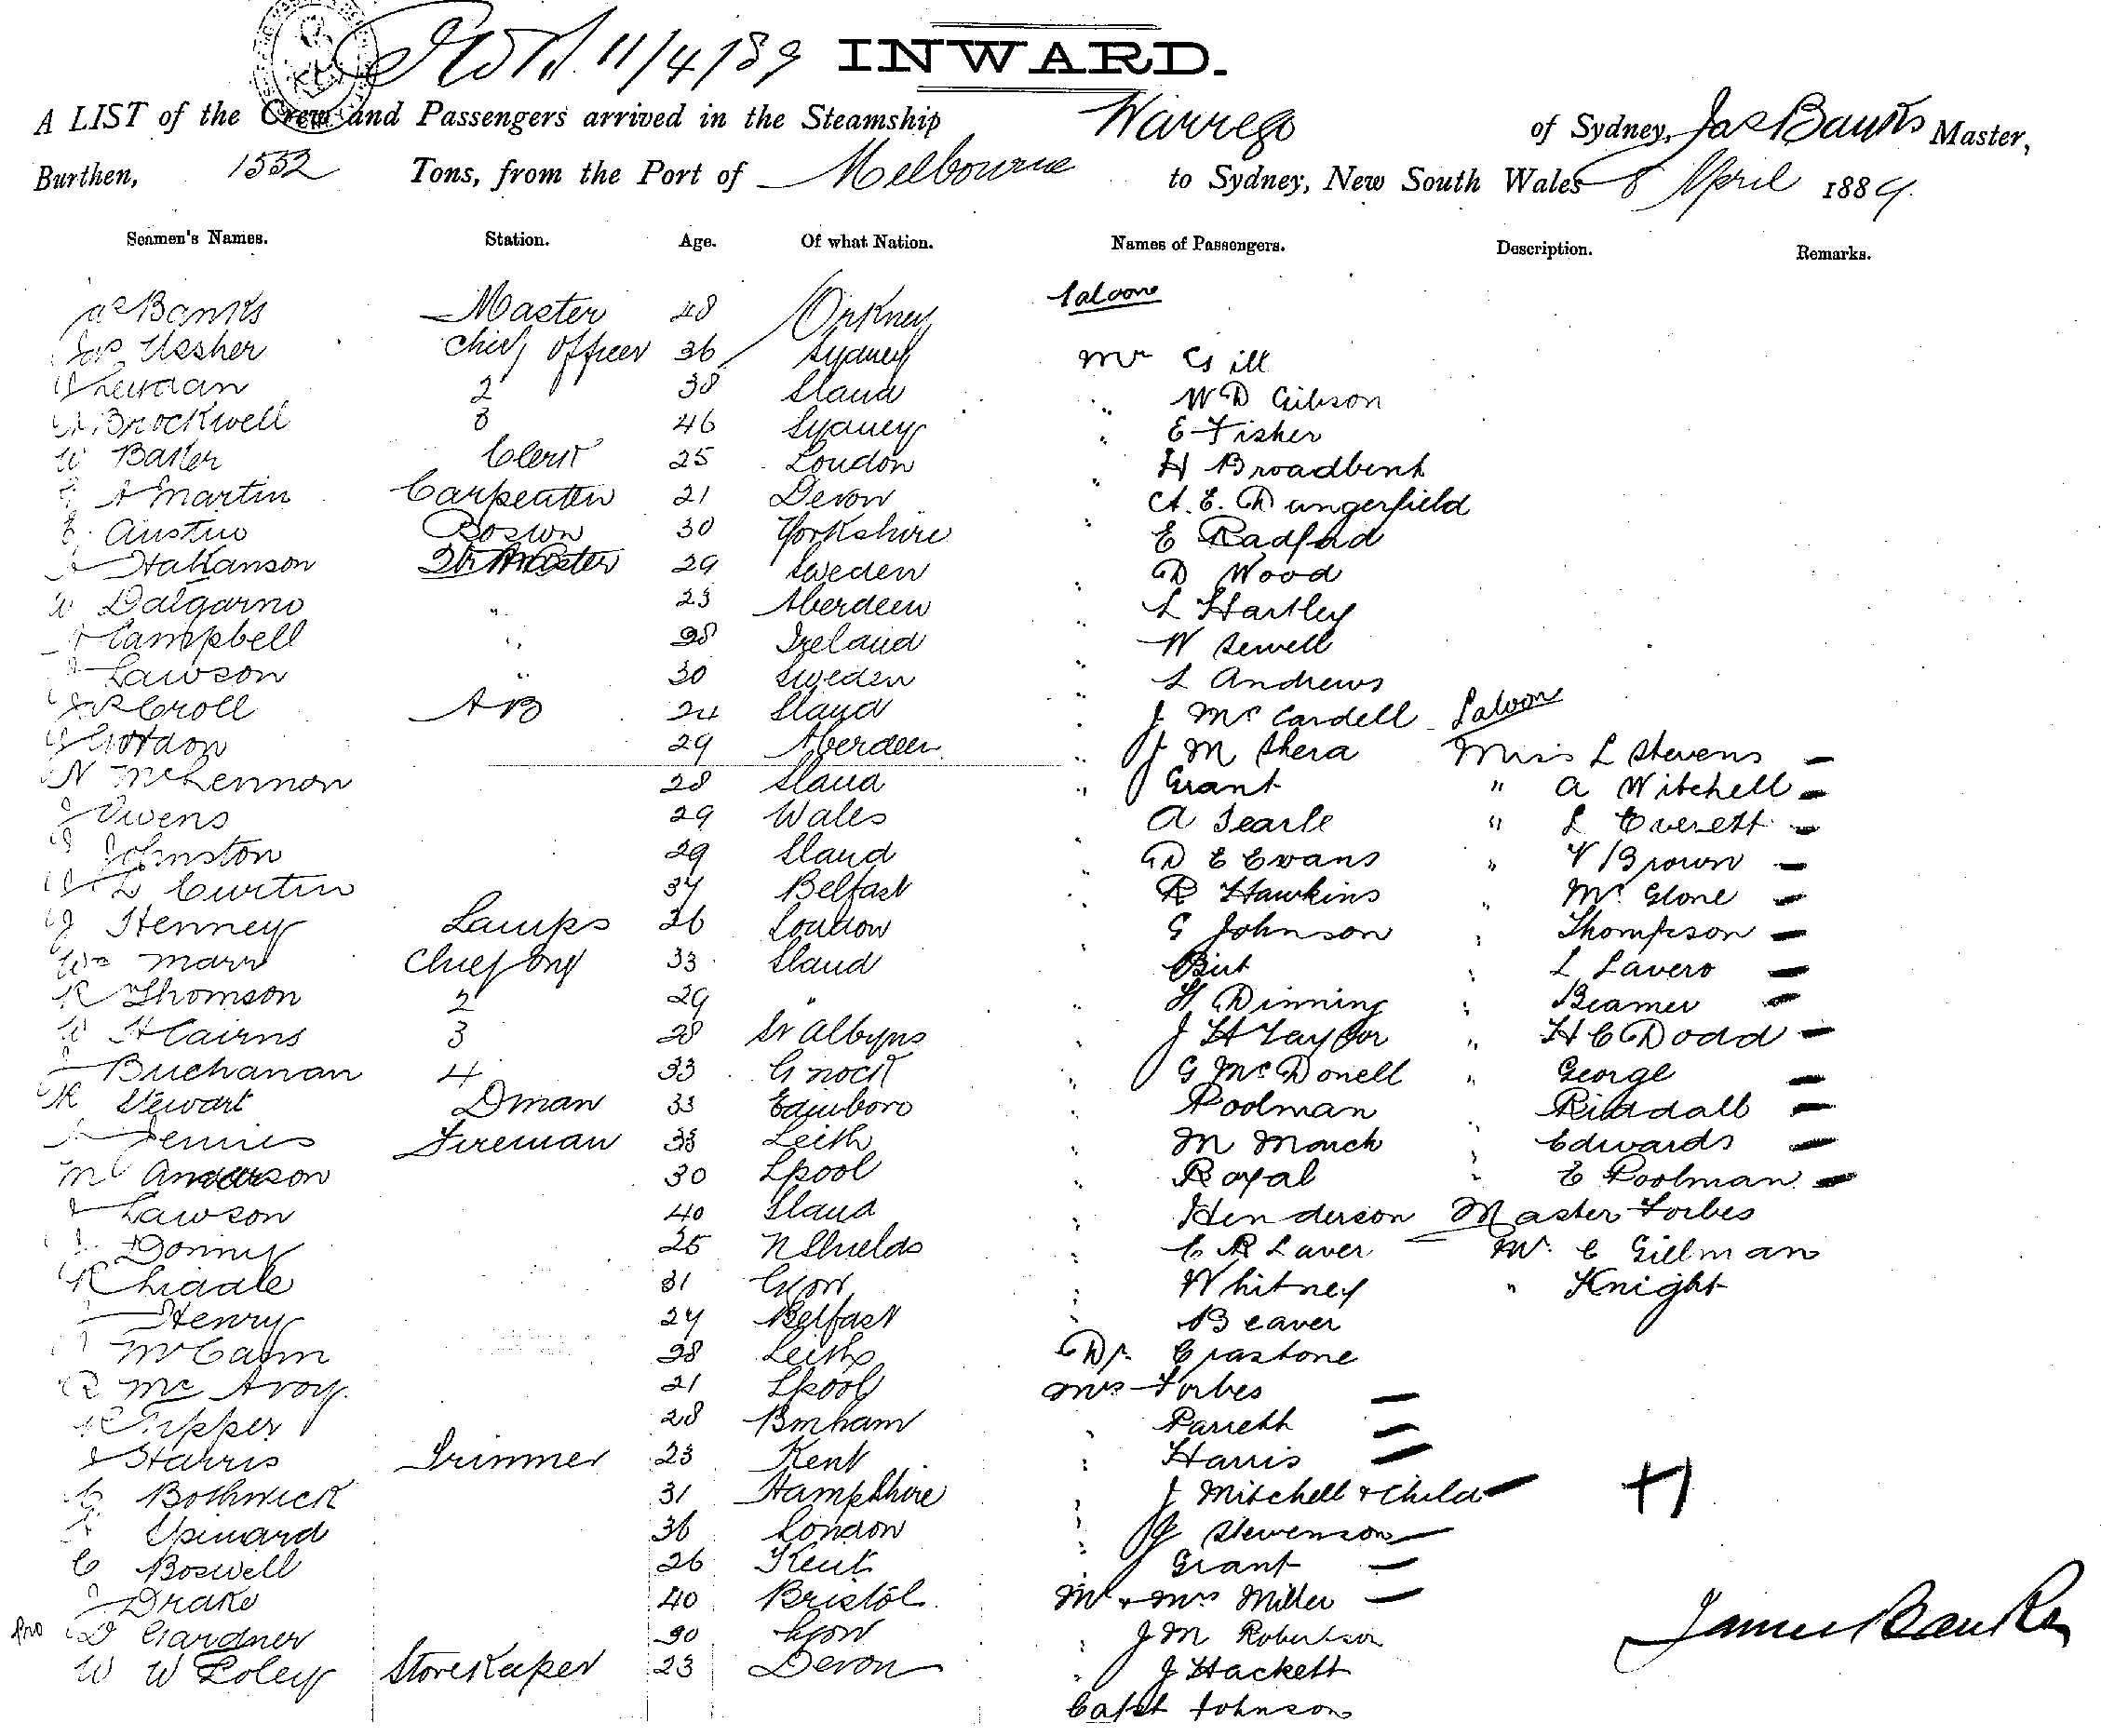 11/4/89 INWARD.
A LIST of the Crew and Passengers arrived in the Steamship Warrego of Sydney, Jas Banks Master,
Burthen, 1552 Tons, from the Port of Melbourne to Sydney, New South Wales 8 April 1889.
Seamen's Names. Station. Age. Of what Nation. Names of Passengers. Description. Remarks.
Saloon
Jas Banks Master 48 Orkney
Jas Ussher Chief Officer 36 Sydney Mr Gill
2 38 Sland " W D Gibson
Brockwell 3 46 Sydney " E Fisher
W Baker Clerk 25 London " H Broadbent
A Martin Carpenter 21 Devon A. E. Dungerfield
E. Austin Boswn 30 Yorkshire " E Radford
Hakanson Qr Master 29 Sweden " D Wood
W Dalgarno " 23 Aberdeen " L Hartley
Campbell " 28 Ireland " W Sewell
Lawson " 30 Sweden " L Andrews
Jas Croll AB 24 Sland " J McCardell Saloon
Gordon 29 Aberdeen " J M Shera Miss L Stevens
N McLennon 28 Sland " Grant " A Witchell
J Owens 29 Wales " A Searle " L Everett
J Johnston 29 Sland " D E Evans " V Brown
Curtin 37 Belfast " R Hawkins " McGlone
J Henney Lamps 26 London " G Johnson " Thompson
Wm Marr Chief Eng 33 Sland " Birt " L Lavers
R Thomson 2 29 " " H Dinning " Beamer
W H Cairns 3 28 St Albyns " J H Taylor " H C Dodd
Buchanan 4 33 Gnock " G McDonell " George
R Stewart Dman 33 Edinboro " Poolman " Riddall
Jennies Fireman 33 Leith " M March " Edwards
M Anderson 30 Lpool " Royal " E Poolman
J Lawson 40 Sland " Henderson Master Forbes
J Donny 25 N Shields " C R Laver Mr C Gillman
R Liddle 31 Glow " Whitney " Knight
Henry 24 Belfast " Beaver
McCann 28 Leith Dr Crastone
R McAvoy 21 Lpool Mrs Forbes
Tipper 28 Bmham " Parrett
J Harris Trimmer 23 Kent " Harris
C Bothwick 31 Hampshire " J Mitchell & Child
Spinard 36 London " J Stevenson
C Boswell 26 Kent " Grant
J Drake 40 Bristol Mr & Mrs Miller
D Gardner 30 Glow " J M Robertson James Banks
W W Foley Storekeeper 23 Devon " J Hackett
Capt Johnson